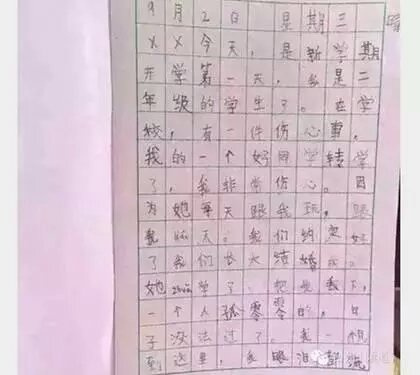 9月2日 星期三 晴
××今天，是新学期
开学第一天，我是二
年级的学生了。在学
校，有一件伤心事，
我的一个好同学转学
了，我非常伤心。因
为她每天跟我玩，跟
我聊天。我们约定好
了我们长大结婚
她zhuǎn学了，把我
一个人孤零零的，日
子没法过了。我一想
到这里，我眼泪都流